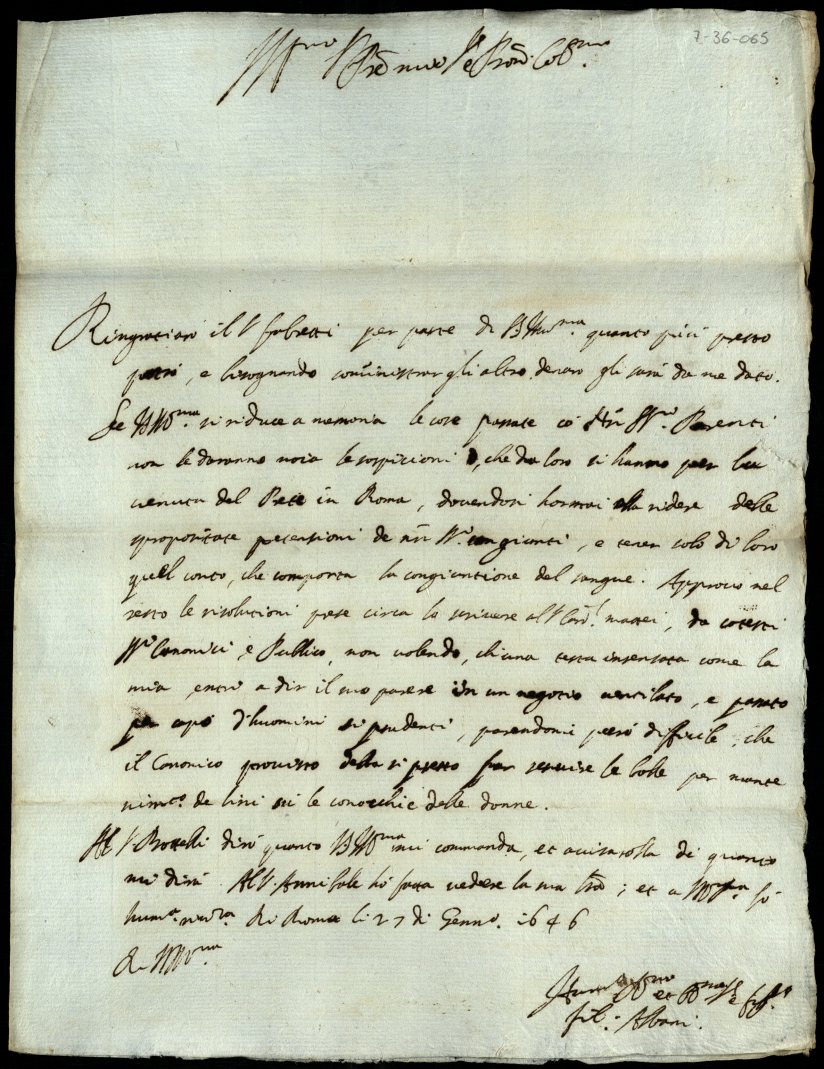 7-36-065
Ill.mo S.r Pre mio S.re e Pron. Col.mo
Ringratiarò il S.r fabretti per parte di VSIll.ma quanto più presto
potrò, e bisognando somministrargli altro denaro gli sarà da me dato.
Se VSIll.ma si riduce a memoria le cose passate cõ Ss.ri Parenti
non le daranno noia le sospicioni, che da loro si hanno per la
venuta del in Roma, dovendosi hormai ella ridere delle
spropositate pretensioni de nri SS.ri congiunti, e tener solo di loro
quel conto, che comporta la congiuntione del sangue. Approvo nel
resto le risolutioni prese circa lo scrivere al S.r Card.l mattei, da cotesti
SS.ri Canonici, e Publico, non volendo, ch'una testa insensata come la
mia, entri a dir il suo parere in un negotio ventilato, e passato
per capi d'huomini sì prudenti, parendomi però difficile, che
il Canonico provisto della si presto far le bolle per
de lini le conocchie delle donne.
Al S.r dirò quanto VSIll.ma mi commanda, et avisarolla di quanto
mi dirà. Al S.r Annibale hò fatta vedere la sua ; et a VSIll.ma fò
hum.a riv.za Di Roma li 27 di Genn.o 1646
Di VSIll.ma
Hum.mo et S.re e
fil.o Albani.